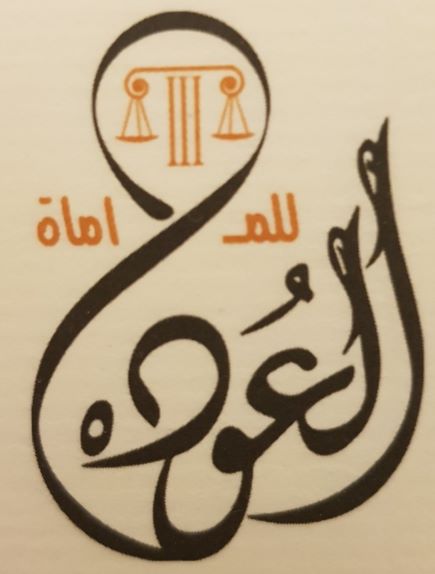 للمحاماة
العُوده